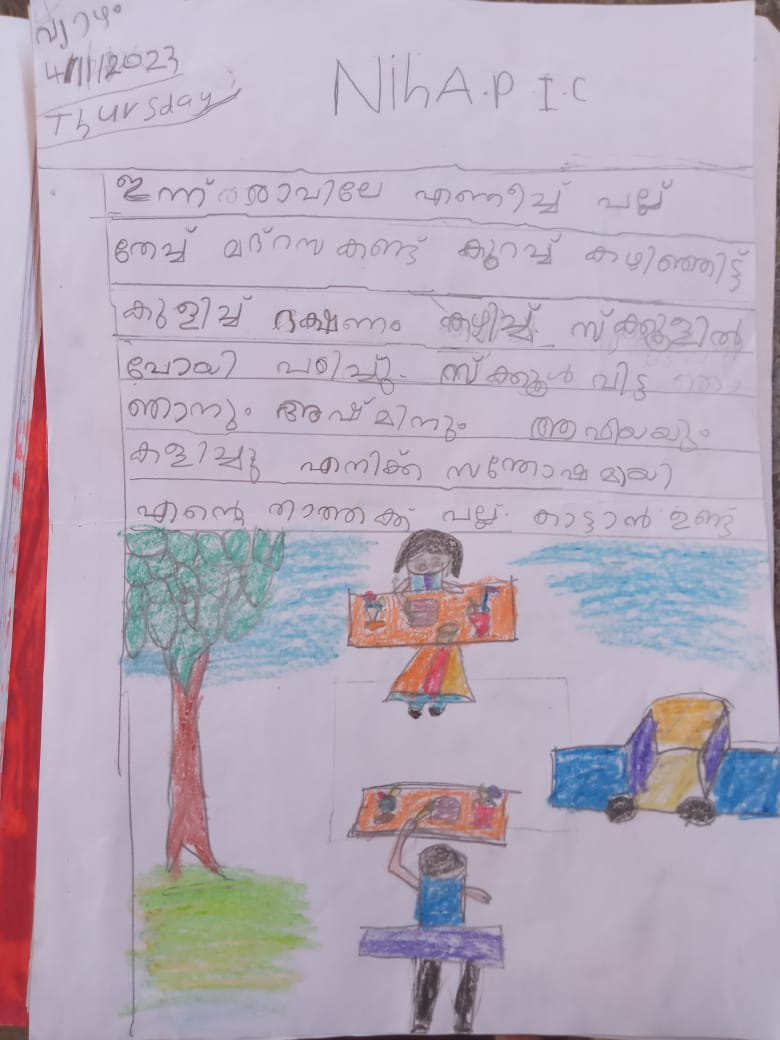 വ്യാഴം
4/11/2023
Thursday
NihA.P I.C
ഇന്ന് രാവിലേ എണീച്ച് പല്ല്
തേച്ച് മദ്റസ കണ്ട് കുറച്ച് കഴിഞ്ഞിട്ട്
കുളിച്ച് ഭക്ഷണം കഴിച്ച് സ്ക്കൂളിൽ
പോയി പഠിച്ചു. സ്ക്കൂൾ വിട്ട
ഞാനും അഷ്മിനും ആഫിയയും
കളിച്ചു എനിക്ക് സന്തോഷമായി
എന്റെ താത്തക്ക് പല്ല് കാട്ടാൻ ഉണ്ട്